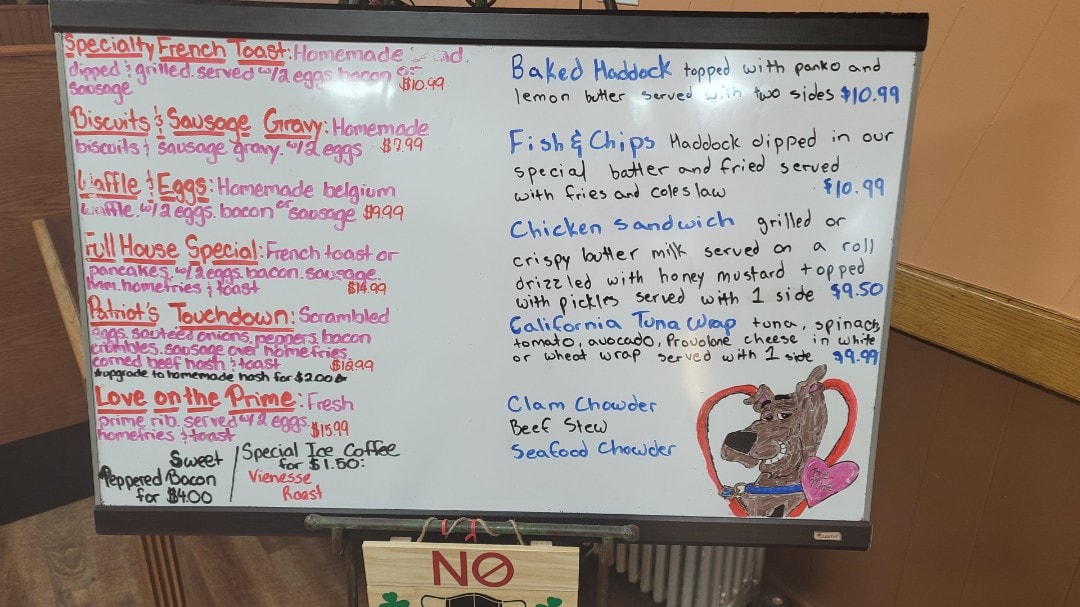 Specialty French Toast: Homemade
dipped & grilled. served w/2 eggs bacon or
sausage $10.99
Biscuits & Sausage Gravy: Homemade
biscuits & sausage gravy. w/2 eggs $7.99
Waffle & Eggs: Homemade belgium
waffle. w/2 eggs. bacon or sausage $9.99
Full House Special: French toast or
pancakes. w/2 eggs. bacon. sausage.
ham. homefries & toast $14.99
Patriot's Touchdown: Scrambled
eggs. sauteed onions. peppers. bacon
crumbles. sausage over homefries
corned beef hash & toast
*upgrade to homemade hash for $2.00*
Love on the Prime: Fresh
prime rib. served w/2 eggs.
homefries & toast $15.99
Sweet
Peppered Bacon
for $4.00
Special Ice Coffee
for $1.50:
Vienesse
Roast
Baked Haddock topped with panko and
lemon butter served with two sides $10.99
Fish & Chips Haddock dipped in our
special batter and fried served
with fries and coleslaw $10.99
Chicken Sandwich grilled or
crispy butter milk served on a roll
drizzled with honey mustard topped
with pickles served with 1 side $9.50
California Tuna Wrap tuna, spinach,
tomato, avocado, Provolone cheese in white
or wheat wrap served with 1 side $9.99
Clam Chowder
Beef Stew
Seafood Chowder
NO